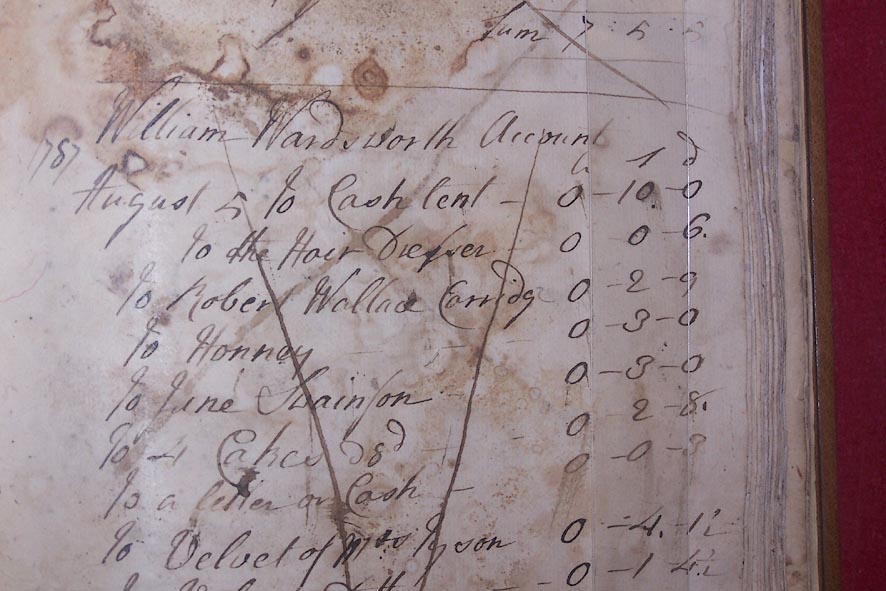 Sum 7 - 5 - 5
William Wardsworth Account
1787
August 5 To Cash lent - 0 - 10 - 0
To the Hair Dresser 0 0 - 6
To Robert Wallace 0 - 2 - 9
To Honney 0 - 3 - 0
To June Swainson 0 - 3 - 0
To 4 Cakes 0 - 2 - 8
To a letter or Cash - 0 - 0 - 3
To Velvet of Mrs Tyson 0 - 4 - 1½
0 - 1 - 4½